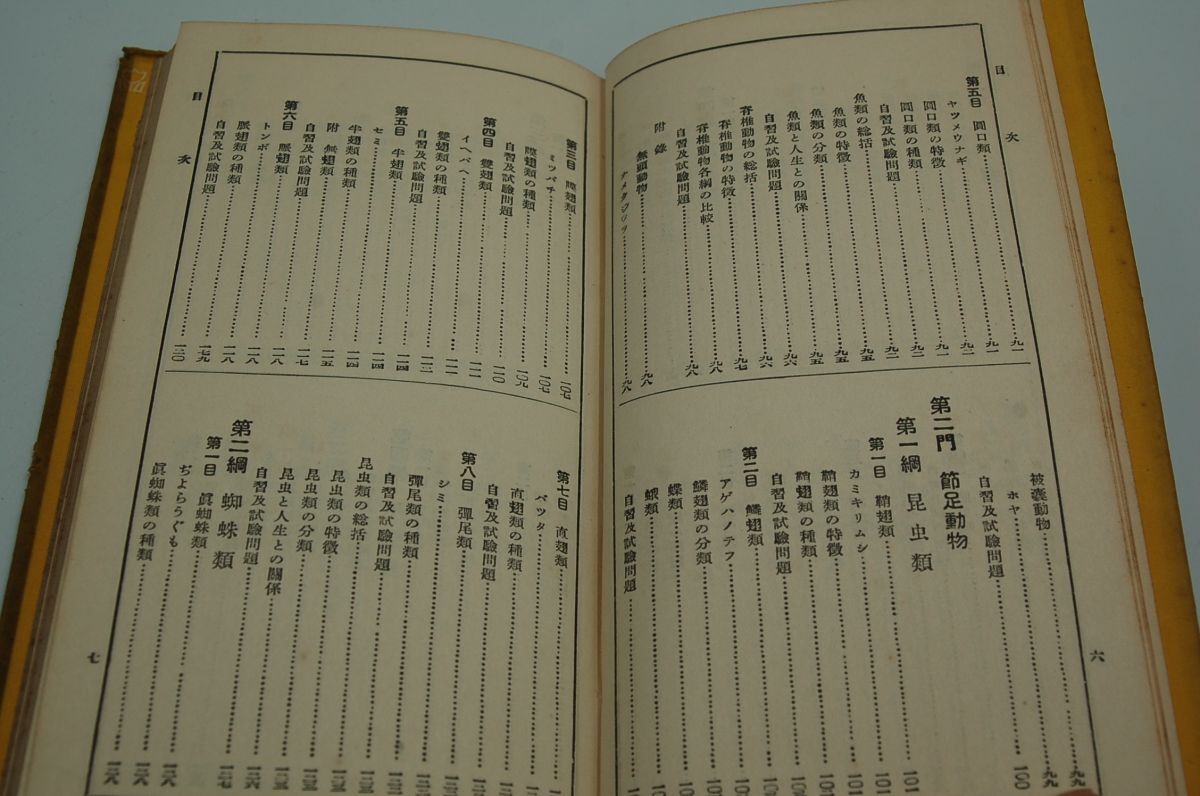 目次
第五目 圓口類……九一
ヤツメウナギ……九一
圓口類の特徴……九一
圓口類の種類……九二
自習及試驗問題……九二
魚類の總括……九五
魚類の特徴……九五
魚類の分類……九五
魚類と人生との關係……九六
自習及試驗問題……九六
脊椎動物の總括……九七
脊椎動物の特徴……九八
脊椎動物各綱の比較
自習及試驗問題……九八
附錄
無頭動物……九八
ナメクヂウヲ……九八
被囊動物……九九
ホヤ……九九
自習及試驗問題……一〇〇
第二門 節足動物
第一綱 昆虫類……一〇一
第一目 鞘翅類……一〇一
カミキリムシ
鞘翅類の特徴
鞘翅類の種類
自習及試驗問題
第二目 鱗翅類
アゲハノテフ
鱗翅類の分類
蝶類
蛾類
自習及試驗問題
六
目次
第三目 膜翅類……一〇七
ミツバチ……一〇七
膜翅類の種類……一〇九
自習及試驗問題……一一〇
第四目 雙翅類
イヘバヘ……一一一
雙翅類の種類……一一一
自習及試驗問題
第五目 半翅類……一一四
セミ……一一四
半翅類の種類……一一四
附 無翅類……一一五
自習及試驗問題……一一七
第六目 脈翅類……一一八
トンボ……一一八
脈翅類の種類……一一八
自習及試驗問題
第七目 直翅類
バツタ
直翅類の種類
自習及試驗問題
第八目 彈尾類
シミ
彈尾類の種類
自習及試驗問題
昆虫類の總括
昆虫類の特徴
昆虫類の分類
昆虫と人生との關係
自習及試驗問題
第二綱 蜘蛛類
第一目 眞蜘蛛類
ぢよらうぐも
眞蜘蛛類の種類
七